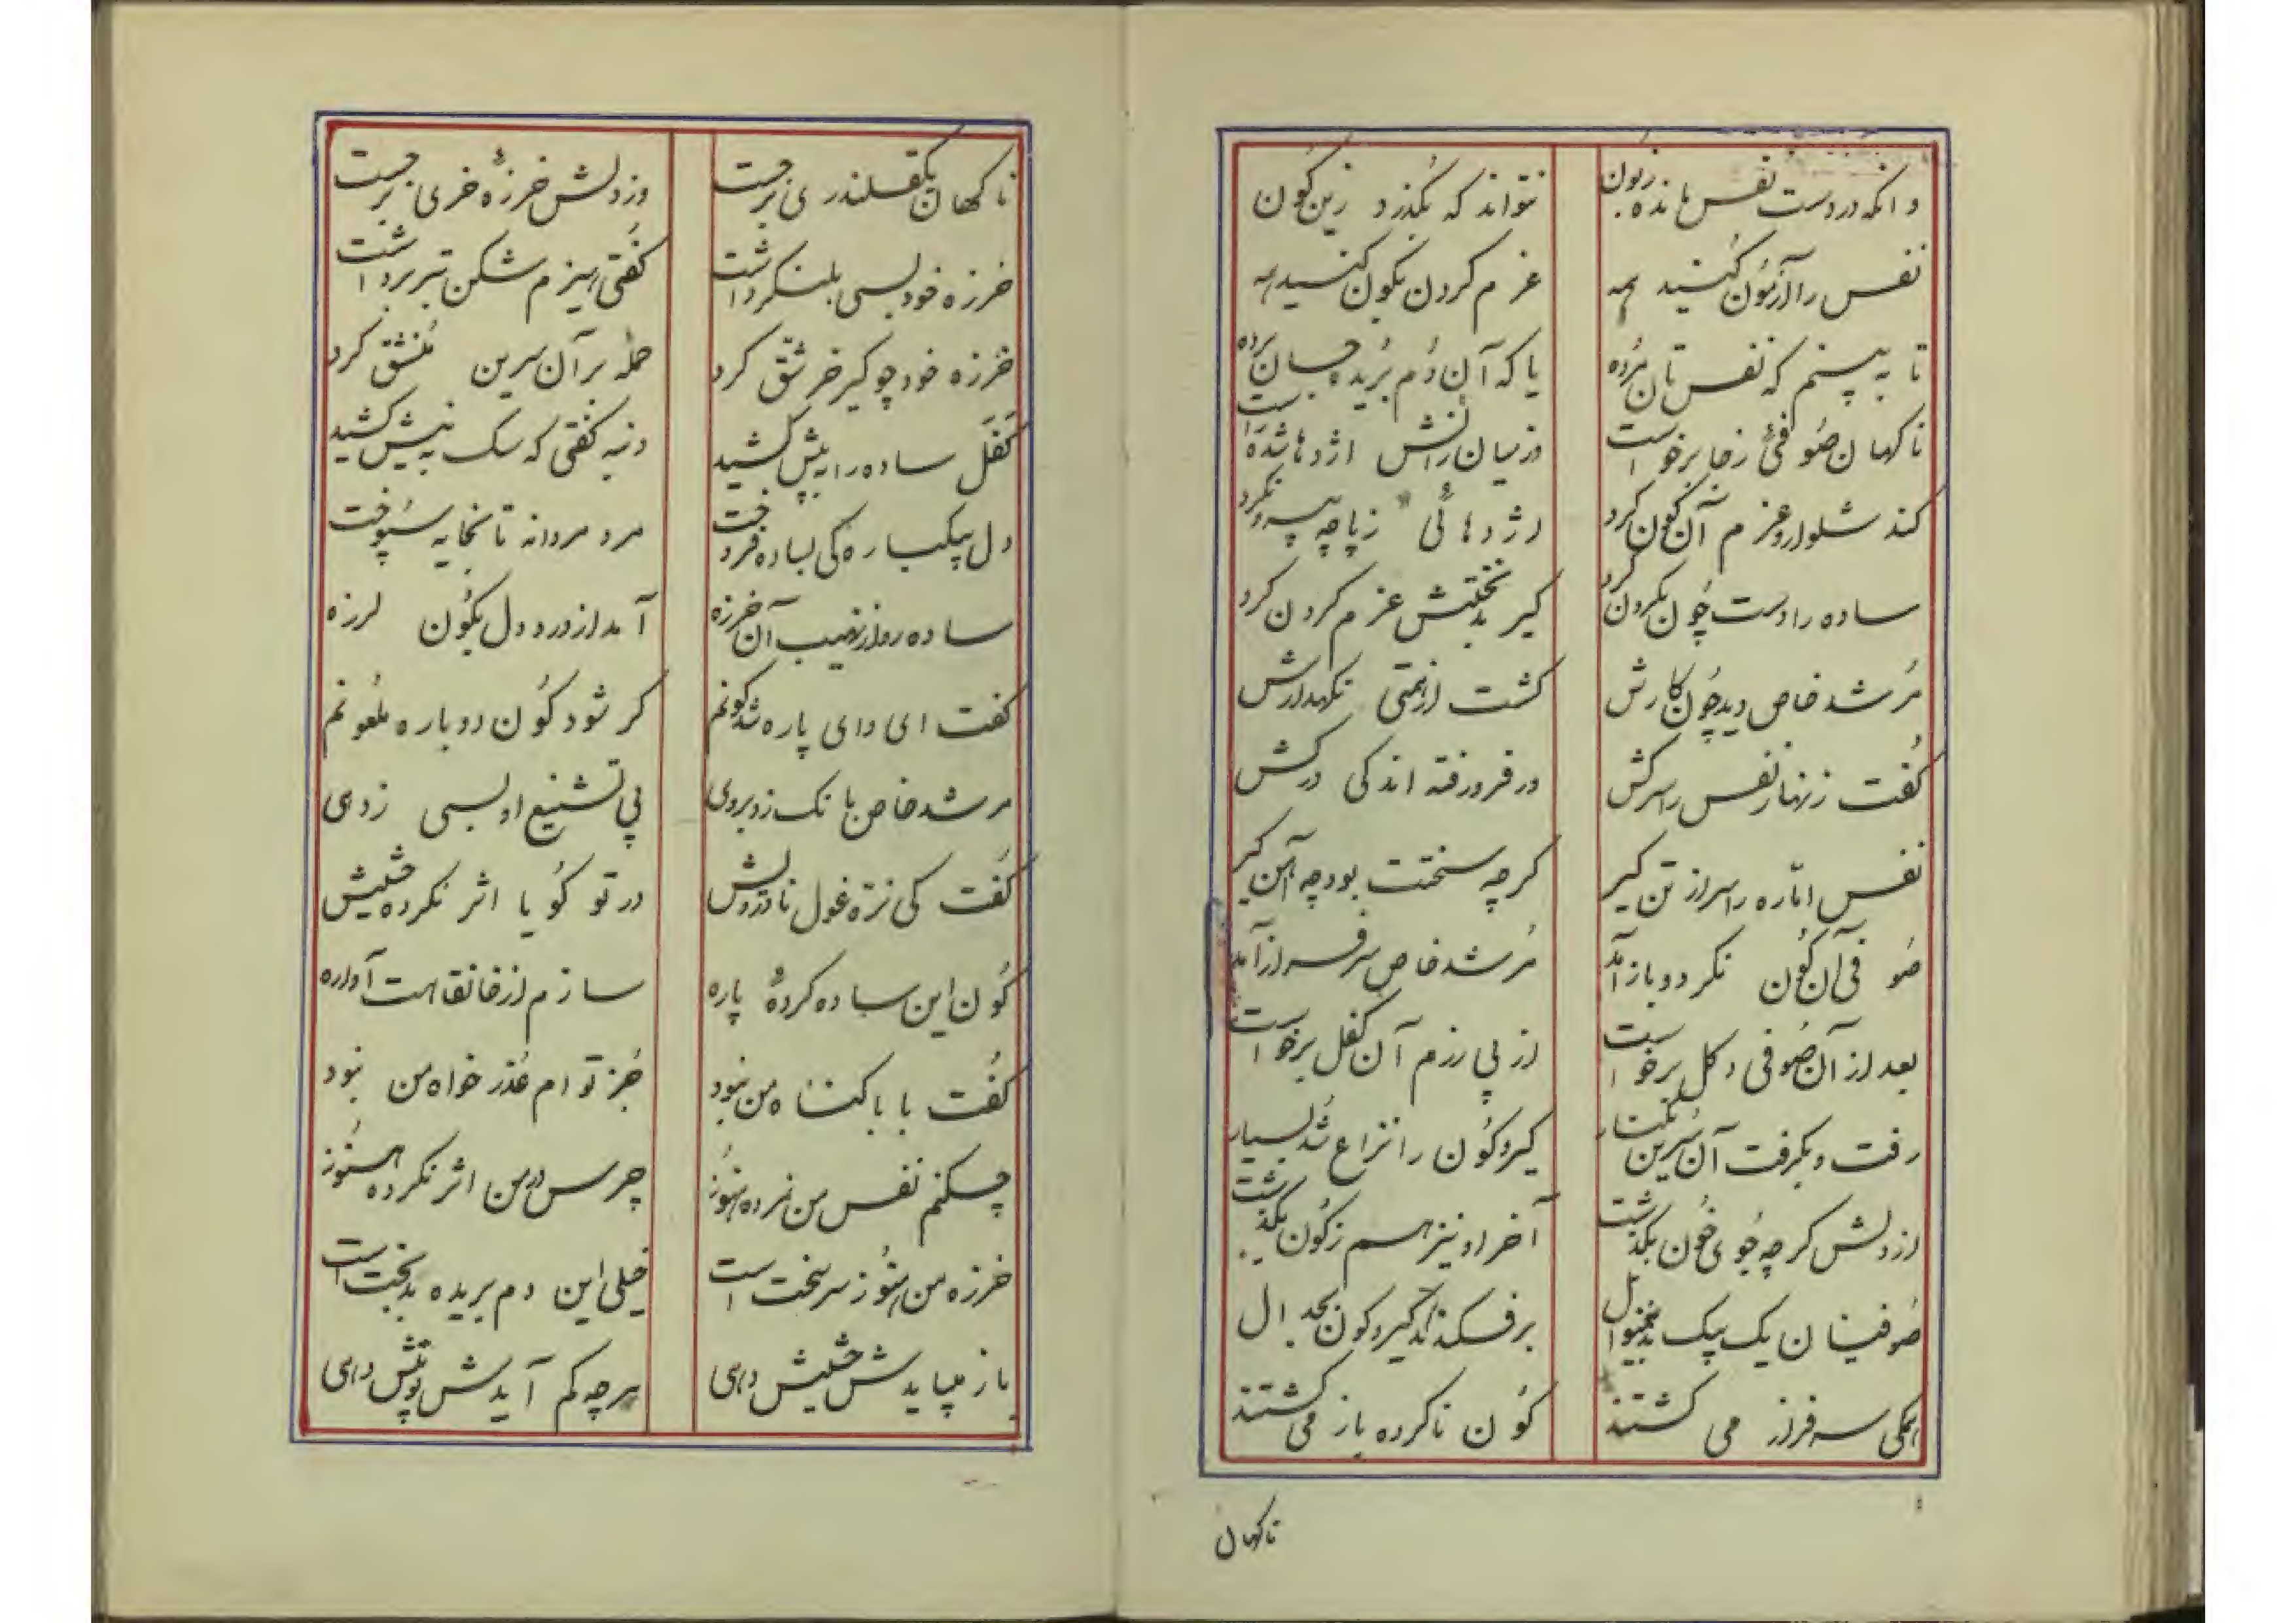 وانکه در دست نفس مانده زبون نتواند که بگذرد زین کون
نفس را آزمون کنید همه عزم کردن بکون کنید همه
تا به بینم که نفس تان مرده یا که آن دم بریده جان برده
ناکهان صوفئی ز جا برخواست وز میان رانش اژدها شده راست
کند شلوار و عزم آن کون کرد اژدهائی ز پاچه بیرون کرد
ساده را دست چون بکردن کرد کیر بدبختش عزم کردن کرد
مرشد خاص دید چون کارش کشت از همتی نکهدارش
کفت زنهار نفس را سرکش در فرو رفته اندکی درکش
نفس اماره را سر از تن کیر کرچه سختت بود چه آهن کیر
صوفی آن کون نکرد و باز آمد مرشد خاص سرفراز آمد
بعد از آن صوفی دکل برخواست از پی رزم آن کفل برخواست
رفت و بکرفت آن سرین بکنار کیر و کون را نزاع شد بسیار
از دلش کرچه جوی خون بکذشت آخر او نیز هم ز کون بکذشت
صوفیان یک بیک بدینمنوال برفکندند کیر و کون بجدال
همکی سرفراز می کشتند کون ناکرده باز می کشتند
ناکهان
ناکهان یکقلندری برجست وز دلش خرزهٔ خری برجست
خرزه خود بسی بلنکر داشت کفتی هیزم شکن تبر برداشت
خرزه خود چو کیر خر شق کرد حمله بر آن سرین منشق کرد
کفل ساده را به پیش کشید دنبه کفتی که سک به نیش کشید
دل بیکباره کی بساده فروخت مرد مردانه تا بخایه سپوخت
ساده رو از نهیب آن خرزه آمد از درد دل بکون لرزه
کفت ای وای پاره شد کونم کر شود کون دوباره ملعونم
مرشد خاص بانک زد بروی پی تشنیع او بسی زد هی
کفت کی نره غول نادرویش در تو کویا اثر نکرده حشیش
کون این ساده کردهٔ پاره سازم از خانقاهت آواره
کفت بابا کناه من نبود جز توام عذر خواه من نبود
چکنم نفس من نمرده هنوز چرس در من اثر نکرده هنوز
خرزه من هنوز سر سخت است خیلی این دم بریده بدبخت است
باز میبایدش حشیش دهی هرچه کم آیدش تو بیش دهی